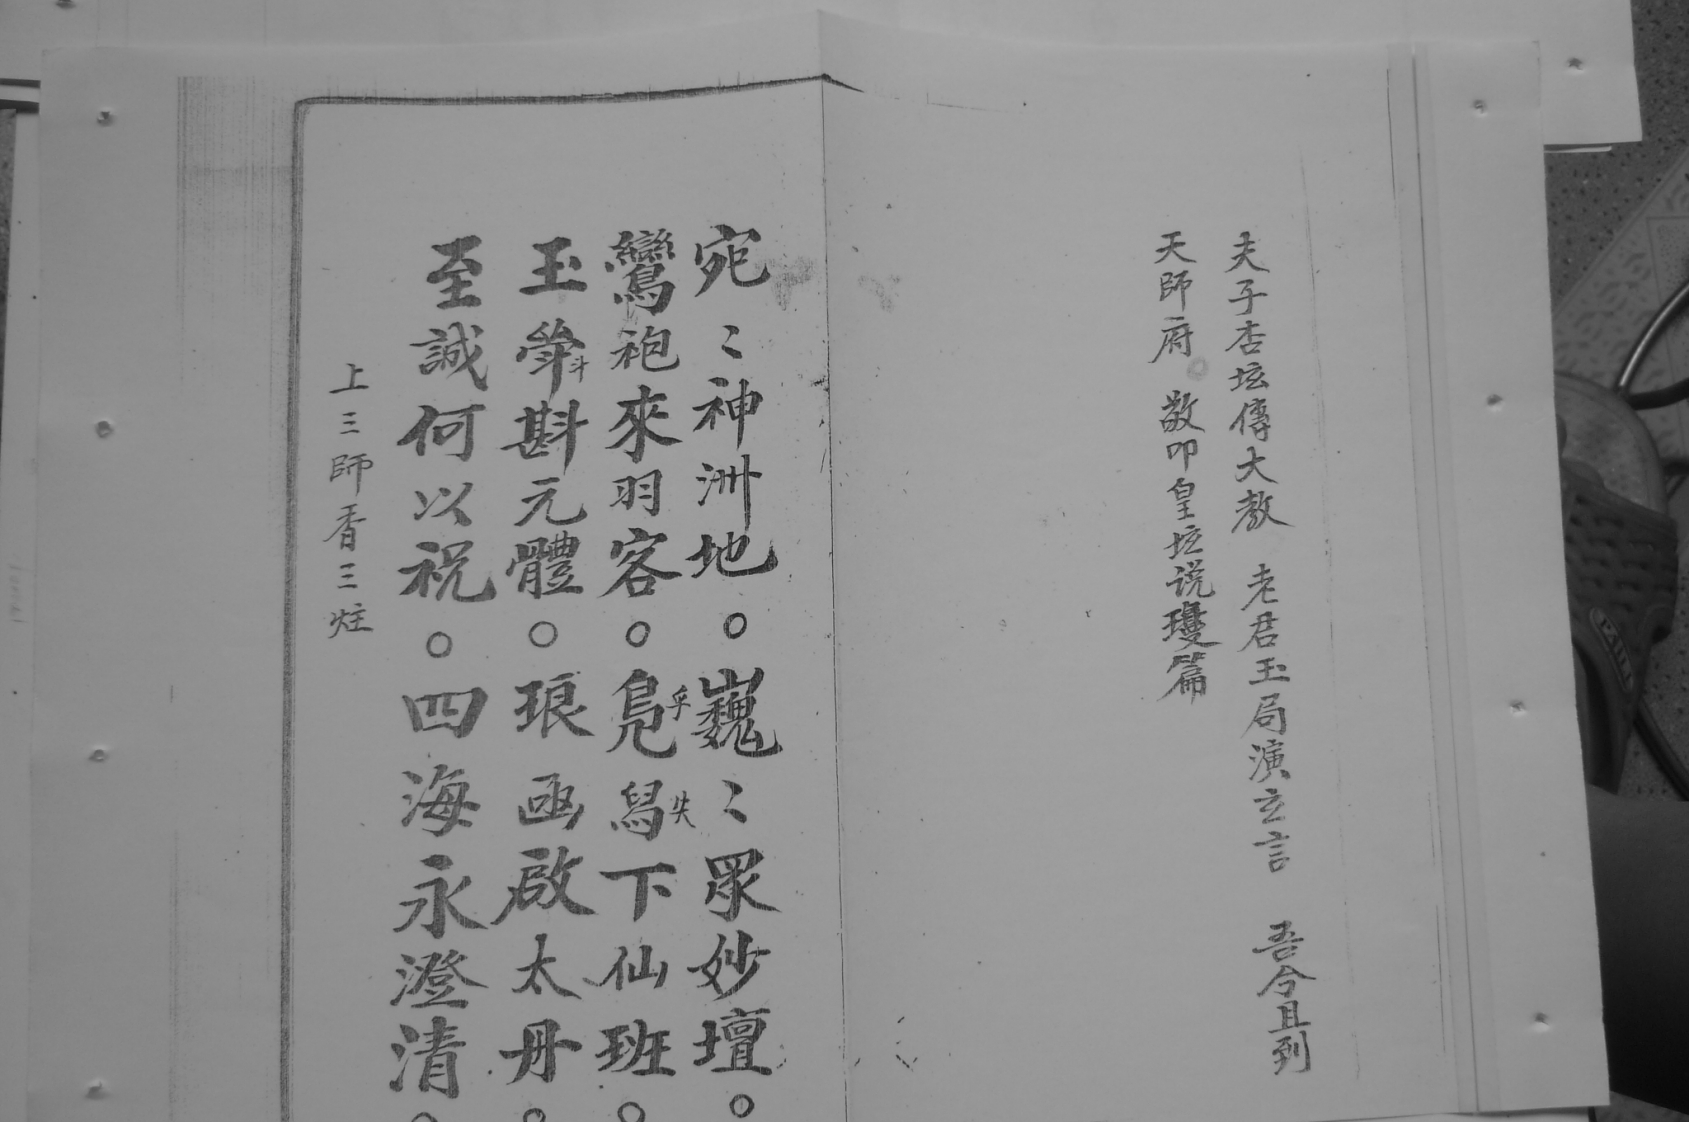 夫子杏坛傳大教 老君玉局演玄言 吾今且到
天師府 敬叩皇坛说瓊篇
宛〻神洲地。巍〻眾妙壇。
鸞袍來羽客。鳧乎舄失下仙班。
玉斝斗斟元醴。琅函啟太丹。
至誠何以祝。四海永澄清。
上三師香三炷